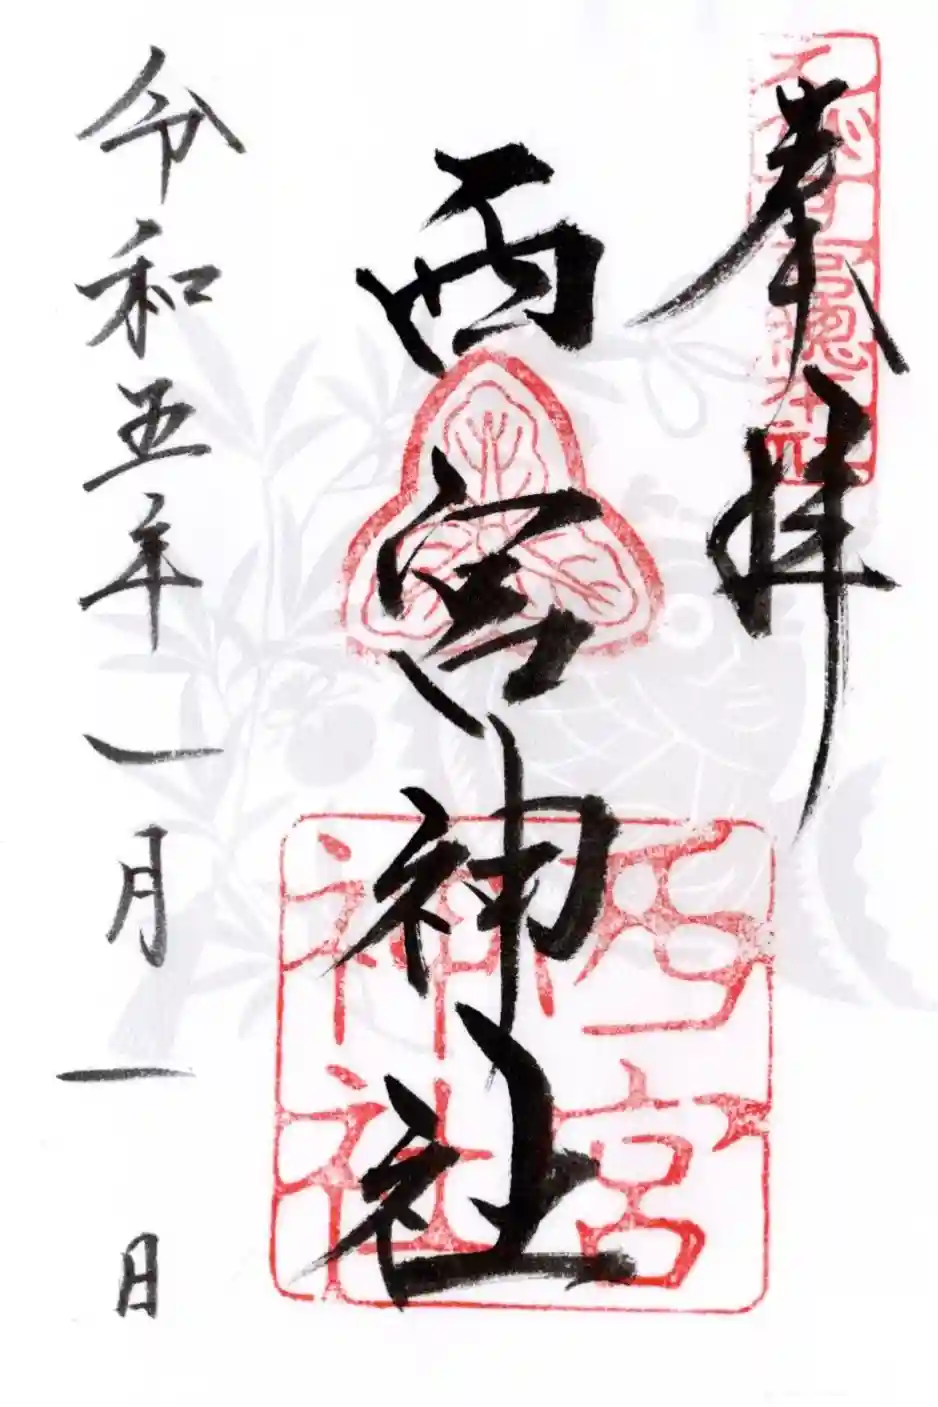 奉拝
西宮神社
令和五年一月一日
西宮
神社